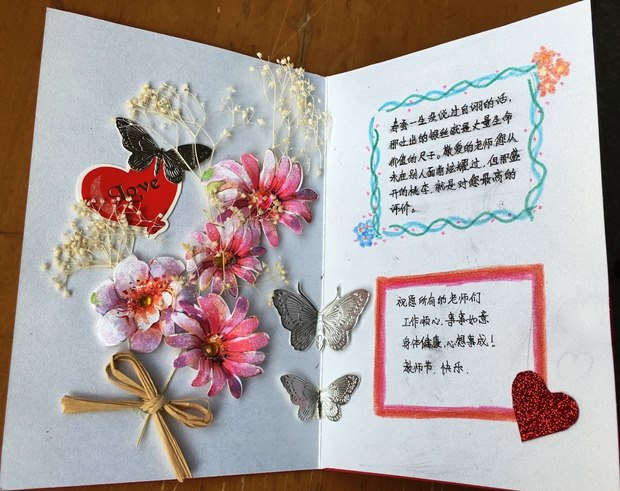 Love
春蚕一生没说过自诩的话，
那吐出的银丝就是丈量生命
价值的尺子。敬爱的老师，您从
未在别人面前炫耀过，但那盛
开的桃李，就是对您最高的
评价。
祝愿所有的老师们
工作顺心，事事如意
身体健康，心想事成！
教师节，快乐